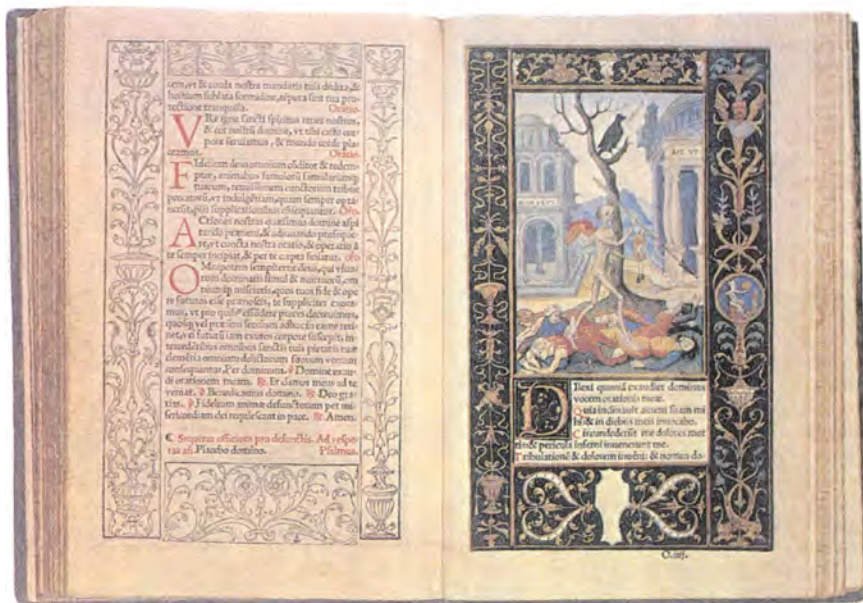 cem, vt & corda nostra mandatis tuis dedita, &
hostium sublata formidine, tẽpora sint tua pro
tectione tranquilla. Oratio.
VRe igne sancti spiritus renes nostros,
& cor nostrũ domine, vt tibi casto cor
pore seruiamus, & mundo corde pla
ceamus. Oratio.
FIdelium deus omnium cõditor & redem
ptor, animabus famulorũ famularumq;
tuarum, remissionem cunctorum tribue
peccatorũ, vt indulgẽtiam, quam semper opta
uerũt, piis supplicationibus cõsequantur. Oro.
ACtiones nostras quæsumus domine aspi
rando præueni, & adiuuando proseque
re, vt cuncta nostra oratio, & operatio à
te semper incipiat, & per te cœpta finiatur. oro
OMnipotens sempiterne deus, qui viuo
rum dominaris simul & mortuorũ, om
niumq; misereris, quos tuos fide & ope
re futuros esse prænoscis, te supplices exora
mus, vt pro quibus effundere preces decreuimus,
quosq; vel præsens seculum adhuc in carne reti
net, vel futurũ iam exutos corpore suscepit, in
tercedẽtibus omnibus sanctis tuis pietatis tuæ
clemẽtia omnium delictorum suorum veniam
consequantur. Per dominum. Domine exau
di orationem meam. Et clamor meus ad te
veniat. Benedicamus domino. Deo gra
tias. Fidelium animæ defunctorum per mi
sericordiam dei requiescant in pace. Amen.
Sequitur officium pro defunctis. Ad vespe
ras añ. Placebo domino. Psalmus.
DIlexi quoniã exaudiet dominus
vocem orationis meæ.
Quia inclinauit aurem suam mi
hi: & in diebus meis inuocabo.
Circundederũt me dolores mor
tis: & pericula inferni inuenerunt me.
Tribulationẽ & dolorem inueni: & nomen do-
O.iiij.